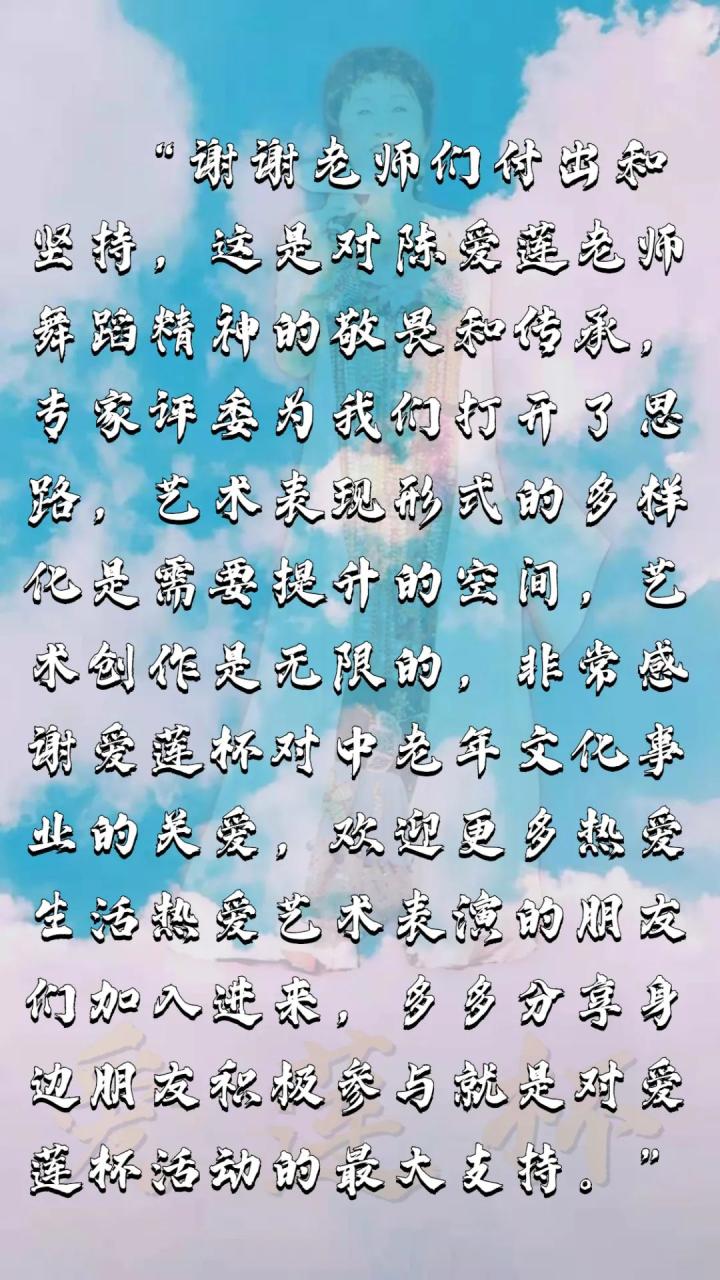 “谢谢老师们付出和
坚持，这是对陈爱莲老师
舞蹈精神的敬畏和传承，
专家评委为我们打开了思
路，艺术表现形式的多样
化是需要提升的空间，艺
术创作是无限的，非常感
谢爱莲杯对中老年文化事
业的关爱，欢迎更多热爱
生活热爱艺术表演的朋友
们加入进来，多多分享身
边朋友积极参与就是对爱
莲杯活动的最大支持。”
爱莲杯